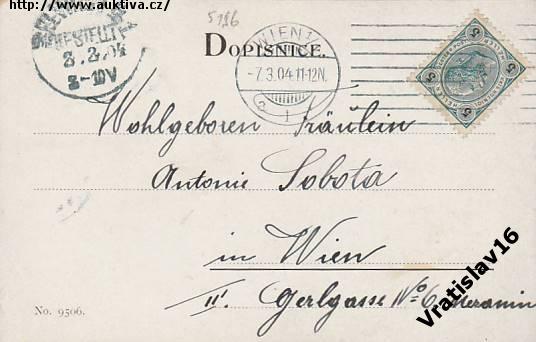 http://www.auktiva.cz/
5196
BESTELLT
8.3.04
8-10V
WIEN 1
-7.3.04.11-12N.
DOPISNICE.
5 HELLER 5
Wohlgeboren Fräulein
Antonie Sobota
in Wien
III. Gerlgasse No 6
Vratislav16
No. 9506.